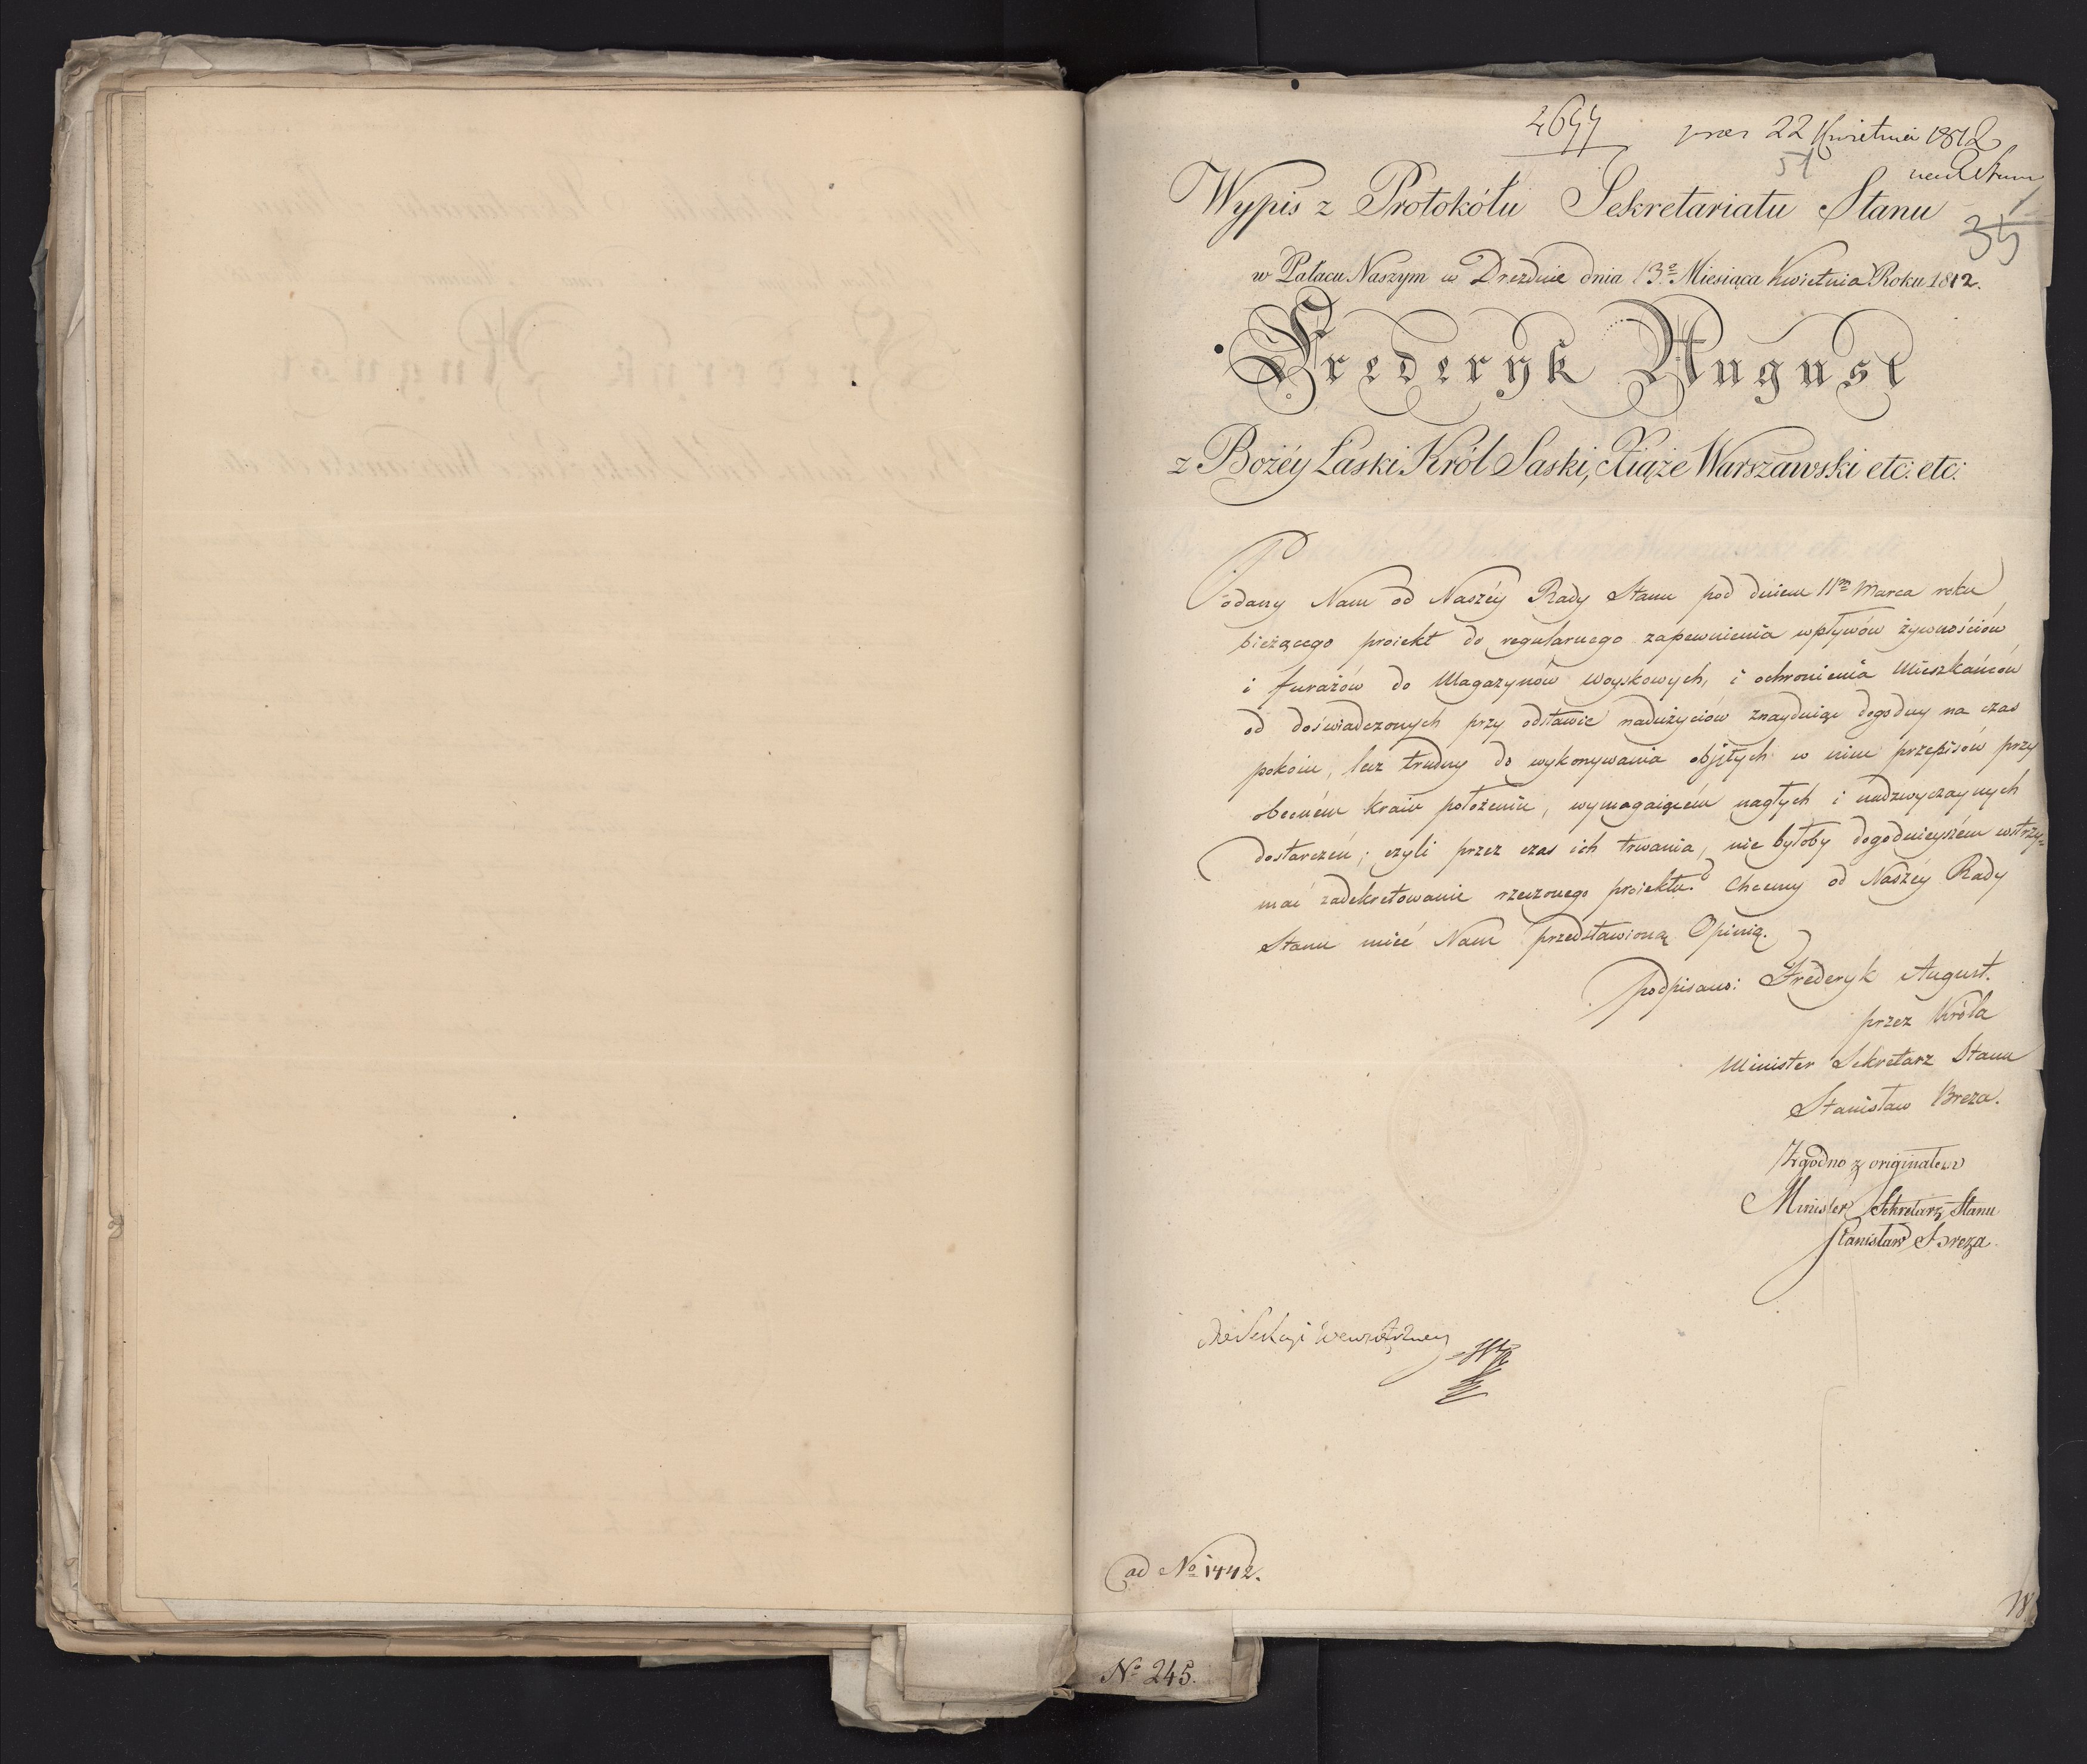 4677
prez 22 Kwietnia 1812
51
Wypis z Protokółu Sekretariatu Stanu
35
w Pałacu Naszym w Dreźnie dnia 13º Miesiąca Kwietnia Roku 1812.
Frederyk August
z Bożéy Łaski Król Saski, Xiąże Warszawski etc: etc:
Podany Nam od Naszéy Rady Stanu pod dniem 11m Marca roku
bieżącego proiekt do regularnego zapewnienia wpływów żywnościów
i furażów do Magazynów Woyskowych, i ochronienia Mieszkańców
od doświadczonych przy odstawie nadużyciów znayduiąc dogodny na czas
pokoiu, lecz trudny do wykonywania objętych w nim przepisów przy
obecném kraiu położeniu, wymagaiącém nagłych i nadzwyczaynych
dostarczeń; czyli przez czas ich trwania, nie byłoby dogodnieyszém wstrzy=
mać zadekretowanie rzeczonego proiektu? Chcemy od Naszéy Rady
Stanu mieć Nam przedstawioną Opinią.
podpisano: Frederyk August.
przez Króla
Minister Sekretarz Stanu
Stanisław Breza.
Zgodno z originałem
Minister Sekretarz Stanu
Stanisław Breza
Do Sekcyi Wewnętrzney
ad Nº 1442.
18
Nº 245.